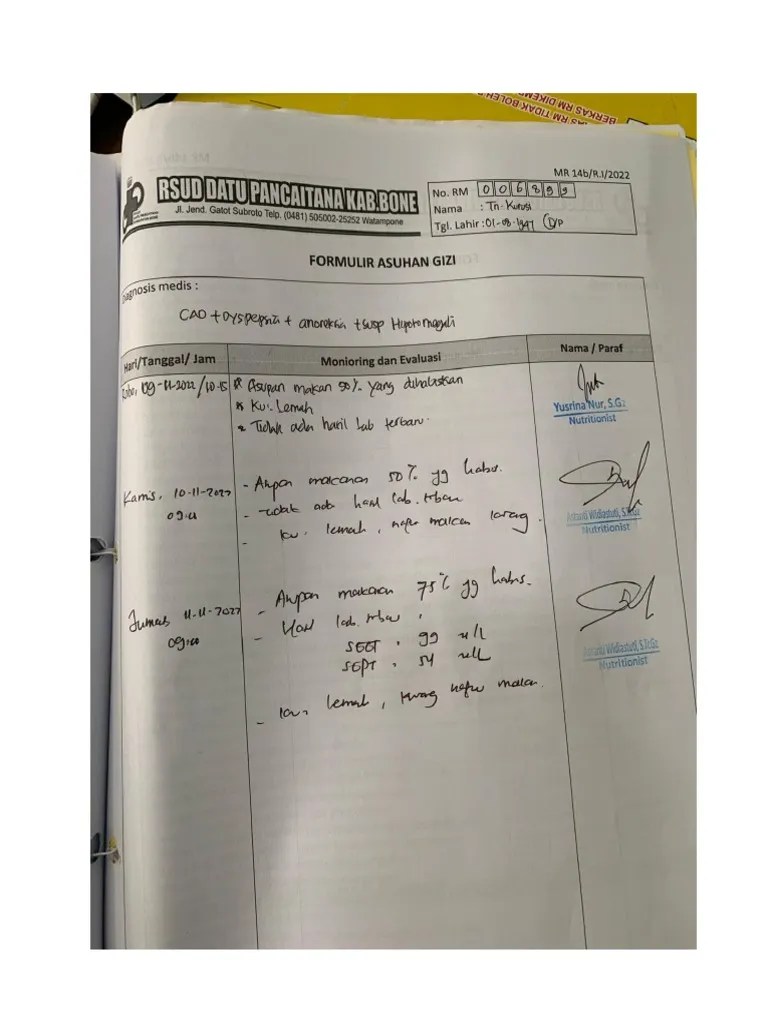 BERKAS RM TIDAK BOLEH
BERKAS RM DIKEM
MR 14b/R.I/2022
RSUD DATU PANCAITANA KAB.BONE
Jl. Jend. Gatot Subroto Telp. (0481) 505002-25252 Watampone
No. RM 006899
Nama : Tn. Kurusi
Tgl. Lahir : 01-08-1947 L/P
FORMULIR ASUHAN GIZI
Diagnosis medis :
CAD + Dyspepsia + anoreksia + susp Hepatomegali
Hari/Tanggal/ Jam
Monioring dan Evaluasi
Nama / Paraf
Rabu, 09-11-2022/10.15
Asupan makan 50% yang dihabiskan
Ku: Lemah
Tidak ada hasil Lab terbaru.
Yusrina Nur, S.Gz
Nutritionist
Kamis, 10-11-2022
09.00
- Asupan makanan 50% yg habis.
- tidak ada hasil lab. trbaru
- ku. lemah, nafsu makan kurang.
Astuti Widiastuti, S.Tr.Gz
Nutritionist
Jumat, 11-11-2022
09.00
- Asupan makanan 75% yg habis.
- Hasil lab. trbaru :
SGOT : 99 u/L
SGPT : 54 u/L
- ku. lemah, kurang nafsu makan.
Widiastuti, S.Tr.Gz
Nutritionist